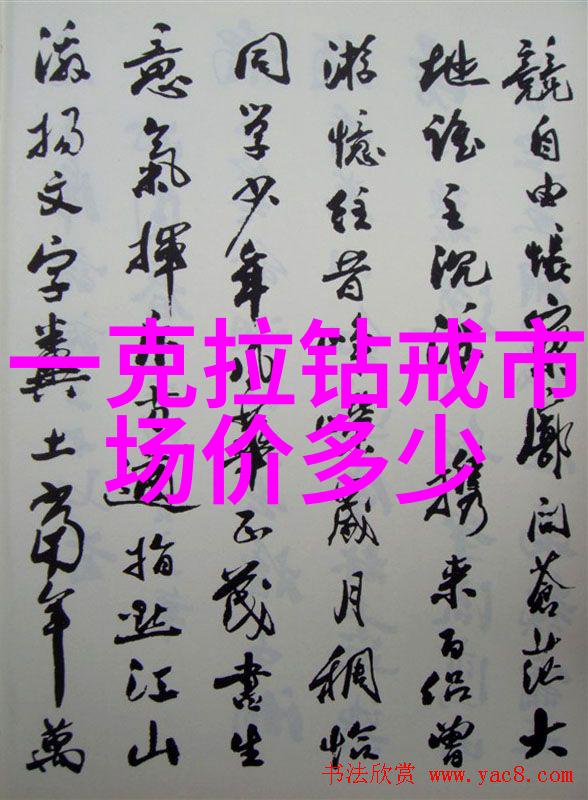 競自由悵寥廓问蒼茫大
地谁主沉浮携来百侣曾
游憶往昔峥嵘歲月稠恰
同学少年风華正茂書生
意氣揮斥方遒指點江山
激揚文字糞土當年萬
一克拉钻戒市
场价多少
书法欣赏 www.yac8.com